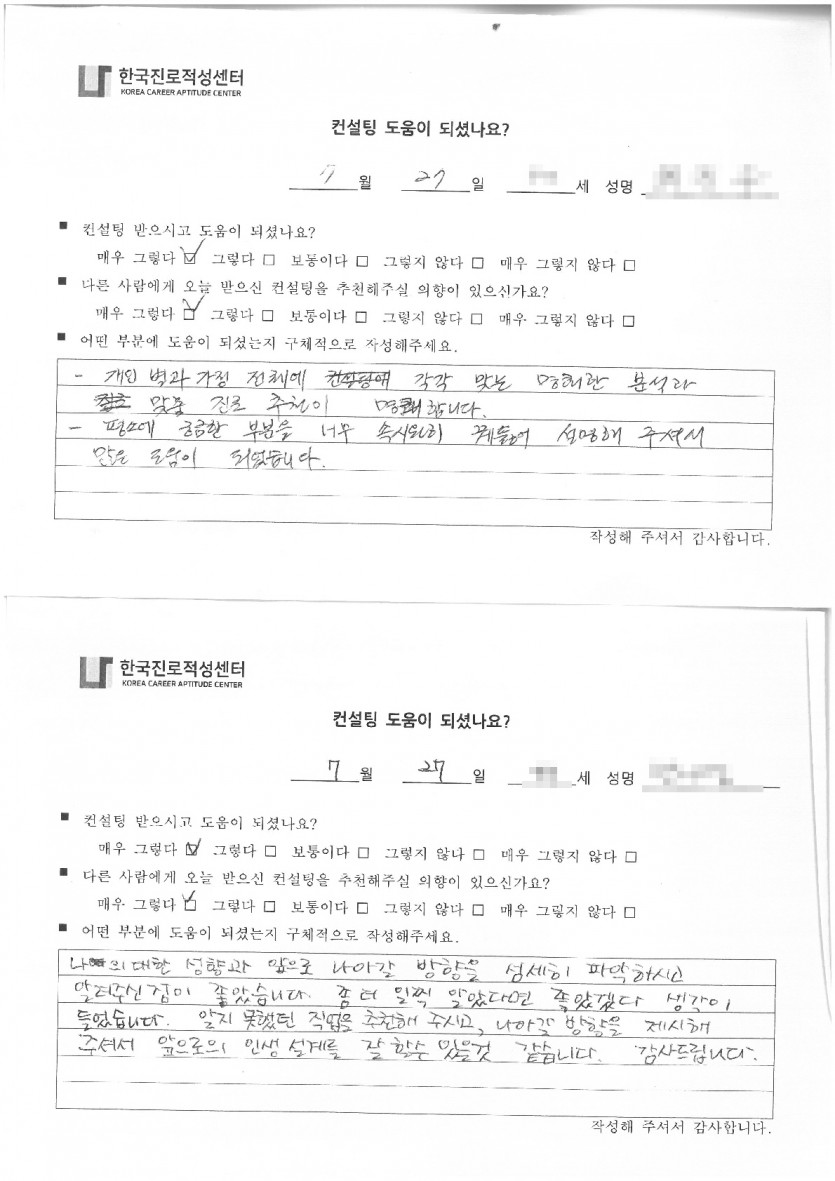 한국진로적성센터
KOREA CAREER APTITUDE CENTER
컨설팅 도움이 되셨나요?
7 월 27 일 세 성명
■ 컨설팅 받으시고 도움이 되셨나요?
매우 그렇다 ☑ 그렇다 □ 보통이다 □ 그렇지 않다 □ 매우 그렇지 않다 □
■ 다른 사람에게 오늘 받으신 컨설팅을 추천해주실 의향이 있으신가요?
매우 그렇다 ☑ 그렇다 □ 보통이다 □ 그렇지 않다 □ 매우 그렇지 않다 □
■ 어떤 부분에 도움이 되셨는지 구체적으로 작성해주세요.
- 개인 별과 가정 전체에 각각 맞는 명쾌한 분석과
맞춤 진로 추천이 명쾌합니다.
- 평소에 궁금한 부분을 너무 속시원히 꿰뚫어 설명해 주셔서
많은 도움이 되었습니다.
작성해 주셔서 감사합니다.
한국진로적성센터
KOREA CAREER APTITUDE CENTER
컨설팅 도움이 되셨나요?
7 월 27 일 세 성명
■ 컨설팅 받으시고 도움이 되셨나요?
매우 그렇다 ☑ 그렇다 □ 보통이다 □ 그렇지 않다 □ 매우 그렇지 않다 □
■ 다른 사람에게 오늘 받으신 컨설팅을 추천해주실 의향이 있으신가요?
매우 그렇다 ☑ 그렇다 □ 보통이다 □ 그렇지 않다 □ 매우 그렇지 않다 □
■ 어떤 부분에 도움이 되셨는지 구체적으로 작성해주세요.
나의대한 성향과 앞으로 나아갈 방향을 섬세히 파악하시고
알려주신점이 좋았습니다. 좀 더 일찍 알았다면 좋았겠다 생각이
들었습니다. 알지 못했던 직업을 추천해 주시고, 나아갈 방향을 제시해
주셔서 앞으로의 인생 설계를 잘 할수 있을것 같습니다. 감사드립니다.
작성해 주셔서 감사합니다.